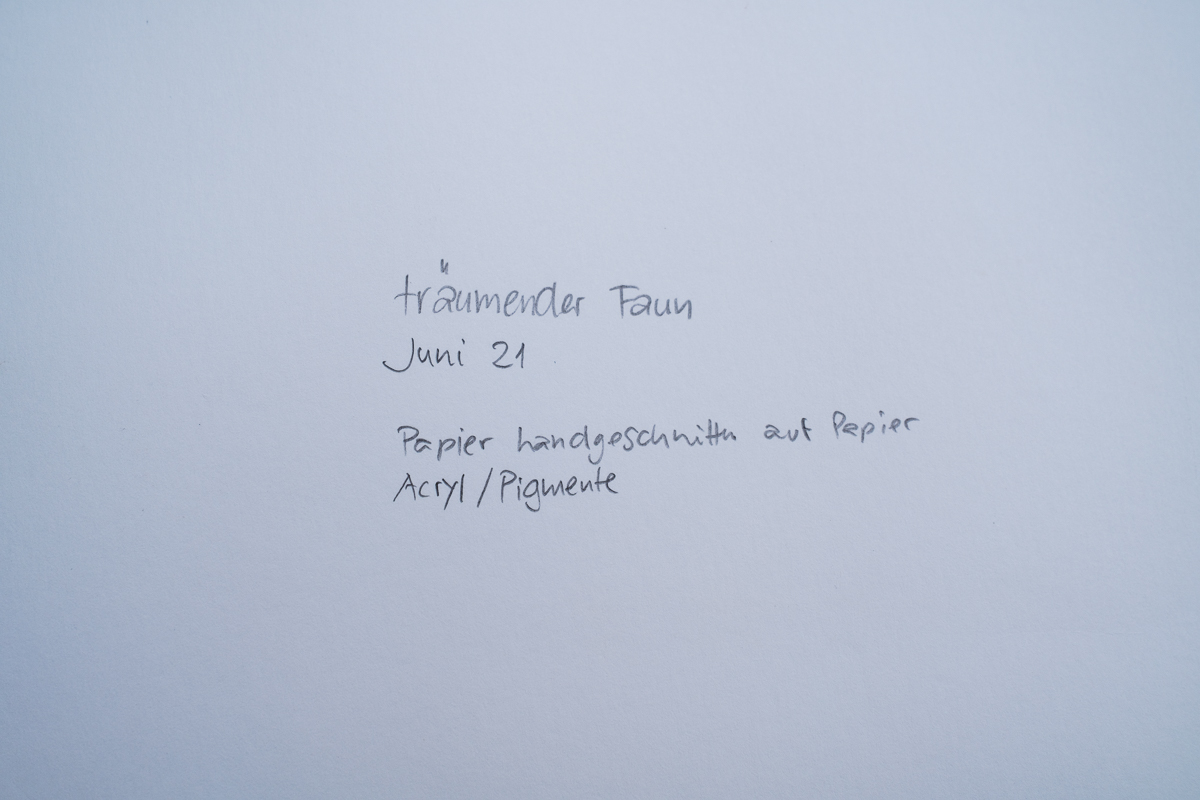 träumender Faun
Juni 21
Papier handgeschnitten auf Papier
Acryl / Pigmente